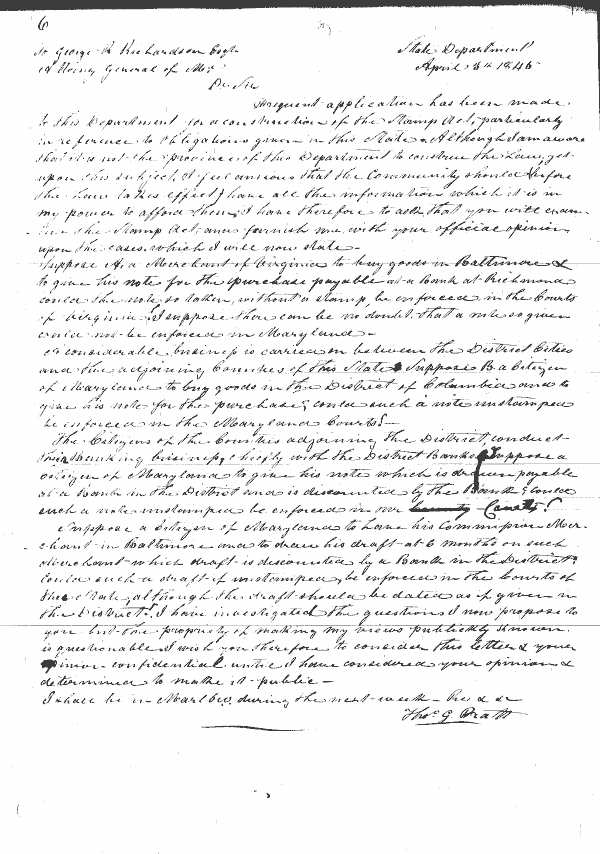 6
To George R Richardson Esqr
Attorney General of Md
State Department
April 8th 1845
Dr Sir
Frequent application has been made
to this Department for a construction of the Stamp Act, particularly
in reference to obligations given in this State. Although I am aware
that it is not the province of this Department to construe the Law, yet
upon this subject I feel anxious that the Community should (before
the Law takes effect) have all the information which it is in
my power to afford them, I have therefore to ask that you will exam-
ine the Stamp Act, and furnish me with your official opinion
upon the cases, which I will now state.
Suppose A, a Merchant of Virginia to buy goods in Baltimore &
to give his note for the purchase payable at a Bank at Richmond
could the note so taken, without a stamp, be enforced in the Courts
of Virginia? I suppose there can be no doubt, that a note so given
could not be enforced in Maryland.
A considerable business is carried on between the District Cities
and the adjoining Counties of this State. Suppose B. a Citizen
of Maryland to buy goods in the District of Columbia and to
give his note for the purchase; could such a note unstamped
be enforced in the Maryland Courts?
The Citizens of the Counties adjoining the District, conduct
their banking business, chiefly with the District Banks. Suppose a
citizen of Maryland to give his note which is drawn payable
at a Bank in the District and is discounted by the Bank; could
such a note unstamped be enforced in our County Courts?
Suppose a Citizen of Maryland to have his Commission Mer-
chant in Baltimore and to draw his draft at 6 months on such
Merchant which draft is discounted by a Bank in the District;
Could such a draft if unstamped, be enforced in the Courts of
the State, although the draft should be dated as if given in
the District? I have investigated the questions I now propose to
you but the propriety of making my views publickly known
is questionable I wish you therefore to consider this letter & your
opinion confidential until I have considered your opinion &
determined to make it public.
I shall be in Marlbro, during the next week.
Thos. G. Pratt